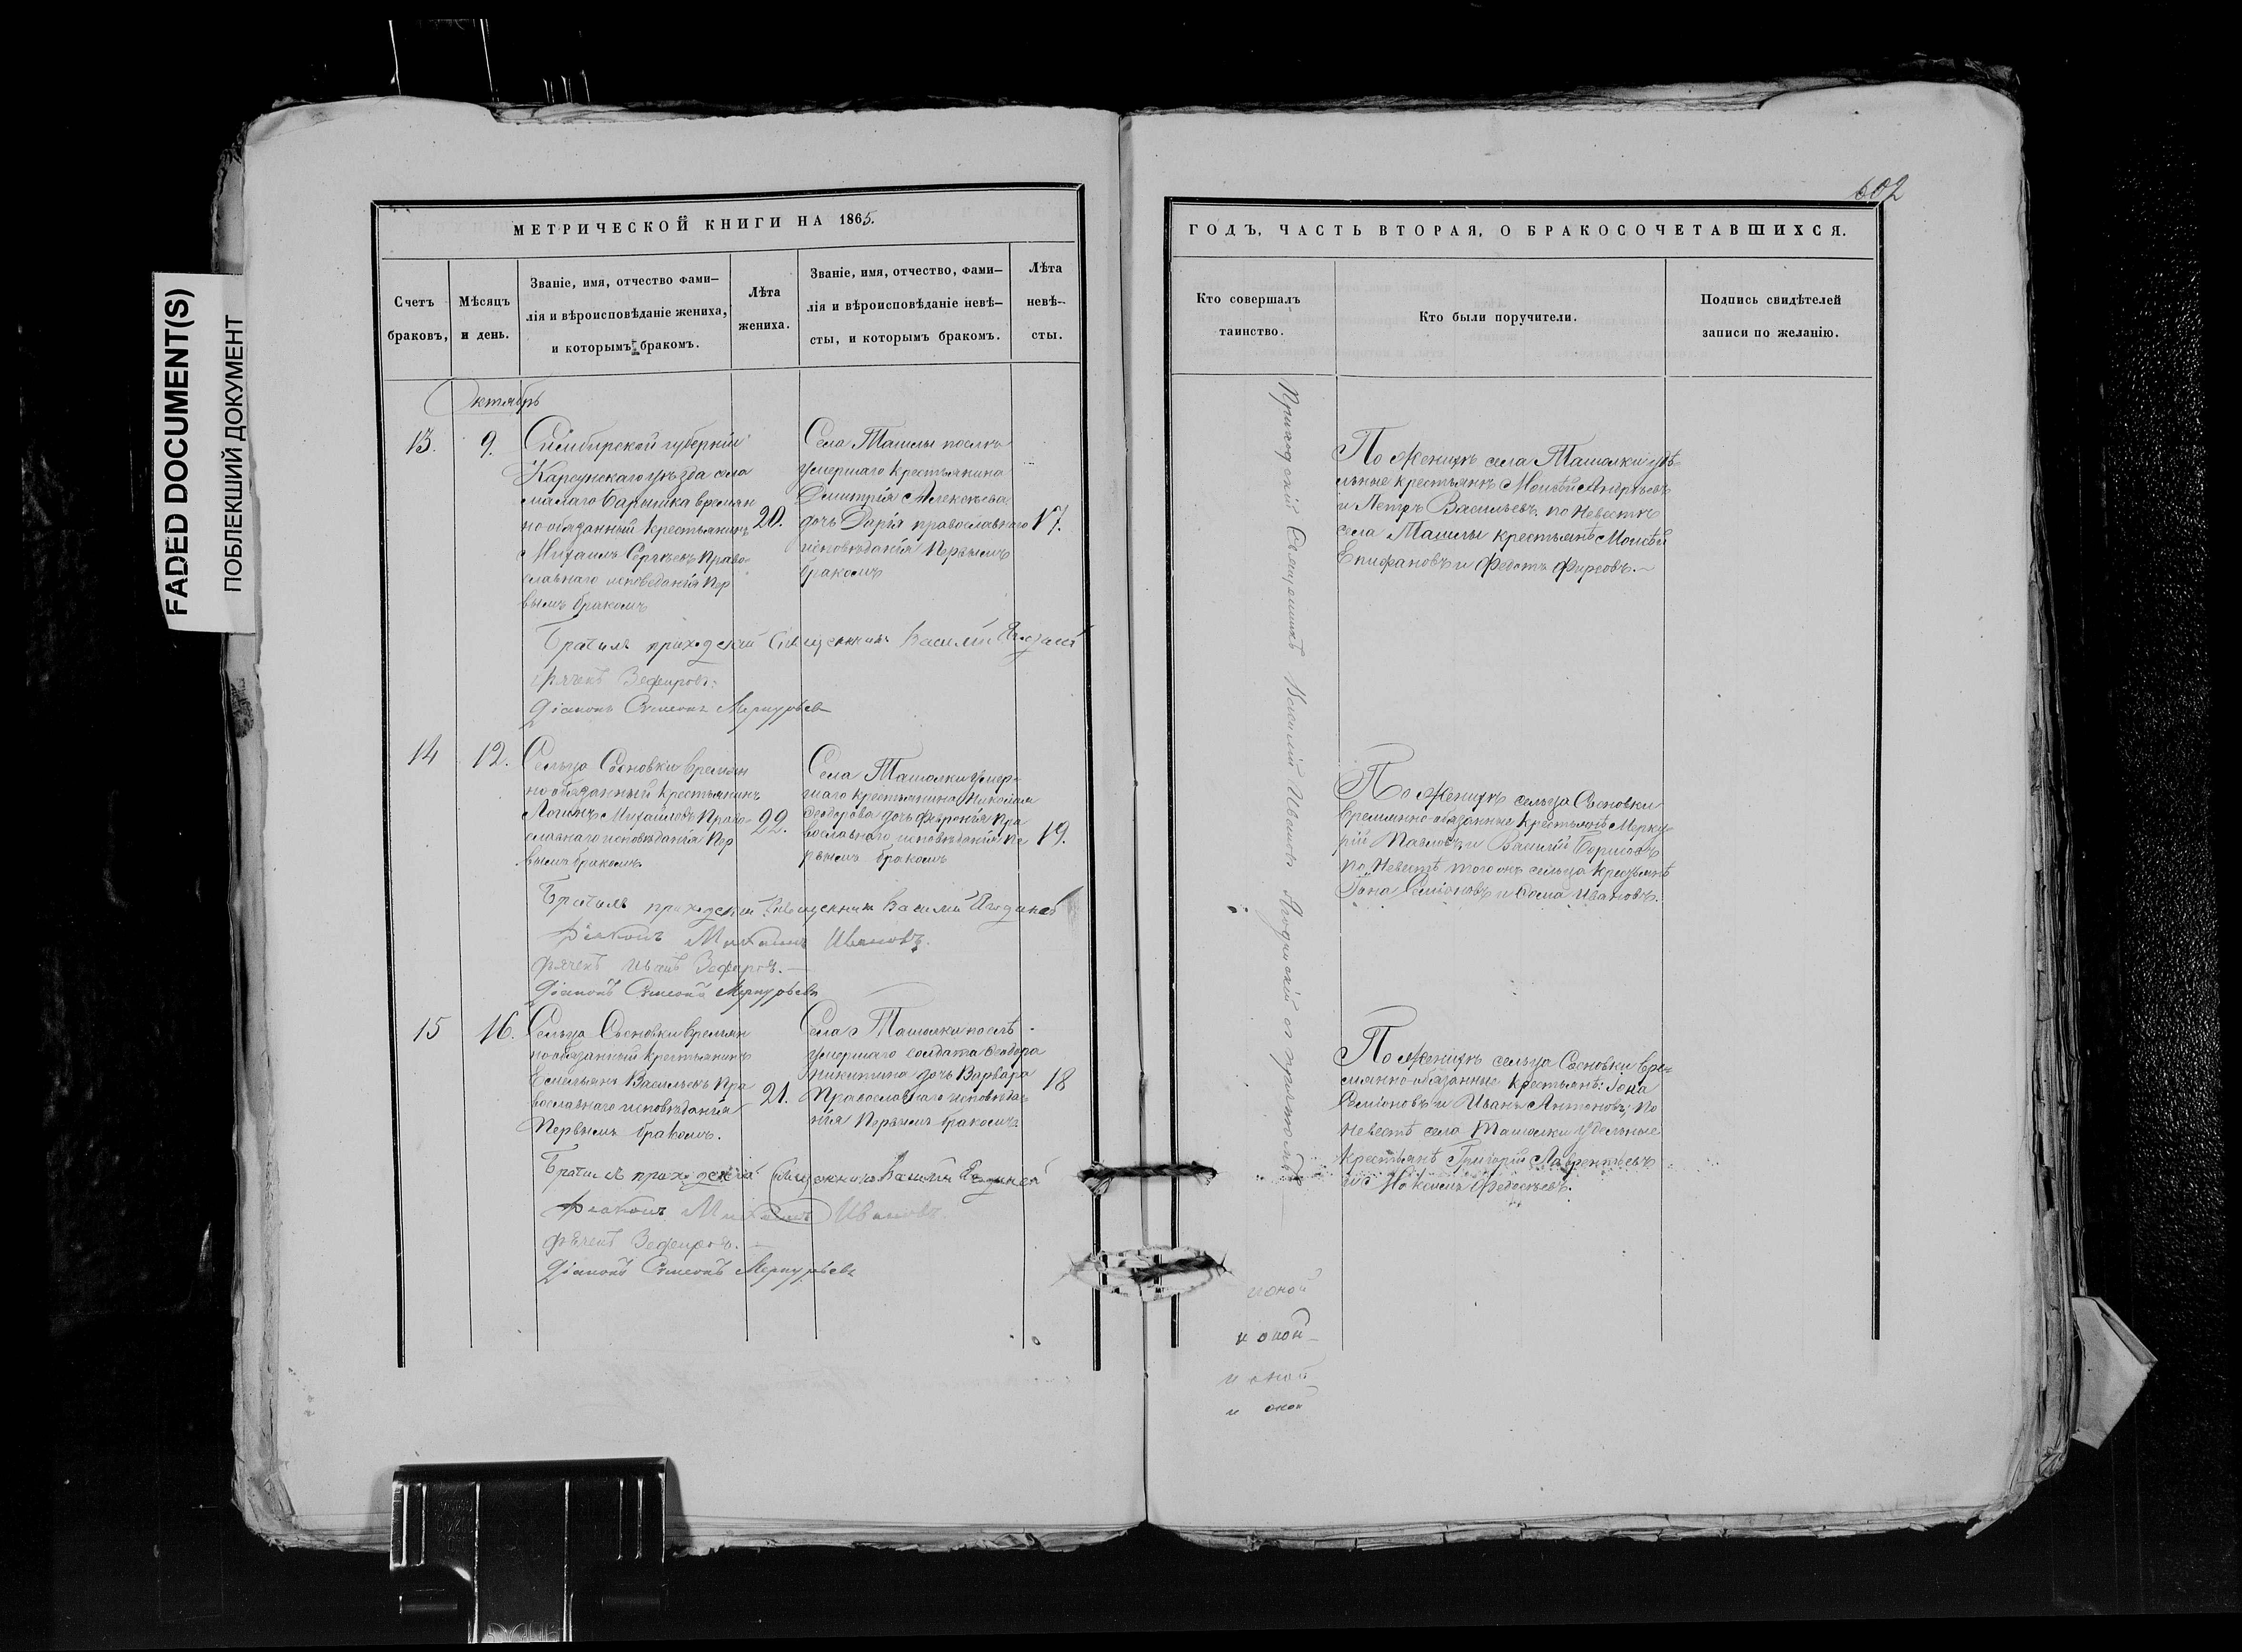 FADED DOCUMENT(S)
ПОБЛЕКШИЙ ДОКУМЕНТ
602
МЕТРИЧЕСКОЙ КНИГИ НА 1865.
Счетъ браковъ,
Мѣсяцъ и день.
Званіе, имя, отчество фами-
лія и вѣроисповѣданіе жениха,
и которымъ бракомъ.
Лѣта
жениха.
Званіе, имя, отчество, фами-
лія и вѣроисповѣданіе невѣ-
сты, и которымъ бракомъ.
Лѣта
невѣ-
сты.
Октябрь
13.
9.
Симбирской губерніи
Карсунскаго уѣзда села
малаго Барышка времян
но обязанный крестьянинъ
Михаилъ Сергѣевъ Право-
славнаго исповеданія пер
вымъ бракомъ
20.
Села Ташлы послѣ
умершаго крестьянина
Димитрія Алексѣева
дочь Дарія православнаго
исповѣданія первымъ
бракомъ
17.
Приходскій Священникъ Василій
Зефировъ.
Діаконъ Симеонъ Меркурьевъ
14
12.
Сельца Сосновки времян
но обязанный крестьянинъ
Логинъ Михайловъ Право-
славнаго исповѣданія пер
вымъ бракомъ
22.
Села Ташолки умер-
шаго крестьянина Николая
Феодорова дочь Феѵронія пра
вославнаго исповѣданія пе
рвымъ бракомъ
19.
приходскій Священникъ Василій
Ивановъ.
Иванъ Зефировъ.
Діаконъ Симеонъ Меркурьевъ
15
16.
Сельца Сосновки времян
но обязанный крестьянинъ
Емельянъ Васильевъ Пра
вославнаго исповѣданія
Первымъ бракомъ.
21.
Села Ташолки послѣ
умершаго солдата Феодора
Никитина дочь Варвара
Православнаго исповѣда-
нія Первымъ бракомъ
18
приходскій Священникъ Василій
Ивановъ.
Зефировъ.
Діаконъ Симеонъ Меркурьевъ
ГОДЪ, ЧАСТЬ ВТОРАЯ, О БРАКОСОЧЕТАВШИХСЯ.
Кто совершалъ
таинство.
Кто были поручители.
Подпись свидѣтелей
записи по желанію.
Приходскій Священникъ Василій Ивановъ Ягодинскій съ причтомъ
По Женихѣ села Ташолки удѣ-
льные крестьянѣ Моисѣй Андреевъ
и Петръ Васильевъ. по невестѣ
села Ташлы крестьянѣ Моисѣй
Епифановъ и Федотъ Фирсовъ.
По Женихѣ сельца Сосновки
времянно-обязанные крестьянѣ Мерку-
рій Павловъ и Василій Борисовъ
по Невестѣ того жъ сельца крестьянѣ
Іона Семіоновъ и Фома Ивановъ.
По Женихѣ сельца Сосновки вре-
мянно-обязанные крестьянѣ: Іона
Семіоновъ и Иванъ Антоновъ; по
невестѣ села Ташолки удельные
крестьянѣ Григорій Лаврентьевъ
и Максимъ Федосѣевъ.